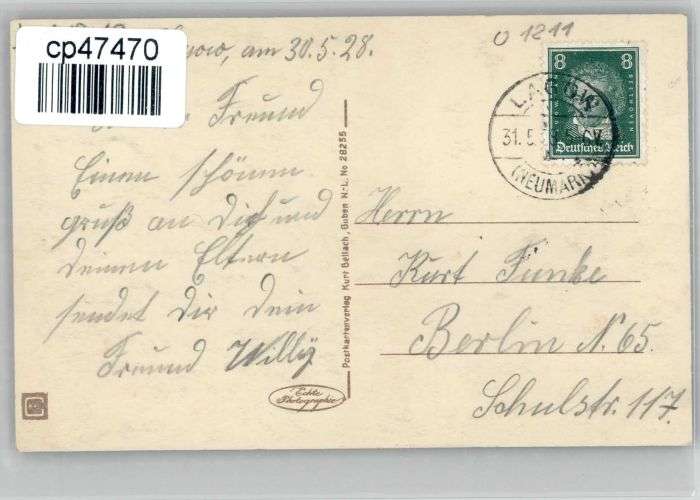 cp47470
am 30.5.28.
O 1211
Freund
Einen schönen
gruß an Dich und
deinen Eltern
sendet Dir dein
Freund Willy
Postkartenverlag Kurt Bellach, Guben N.-L. No 28255
Echte
Photographie
8 8
BEETHOVEN
Deutsches Reich
LAGOW
31.5.
(NEUMARK)
Herrn
Kurt Funke
Berlin N. 65.
Schulstr. 117.